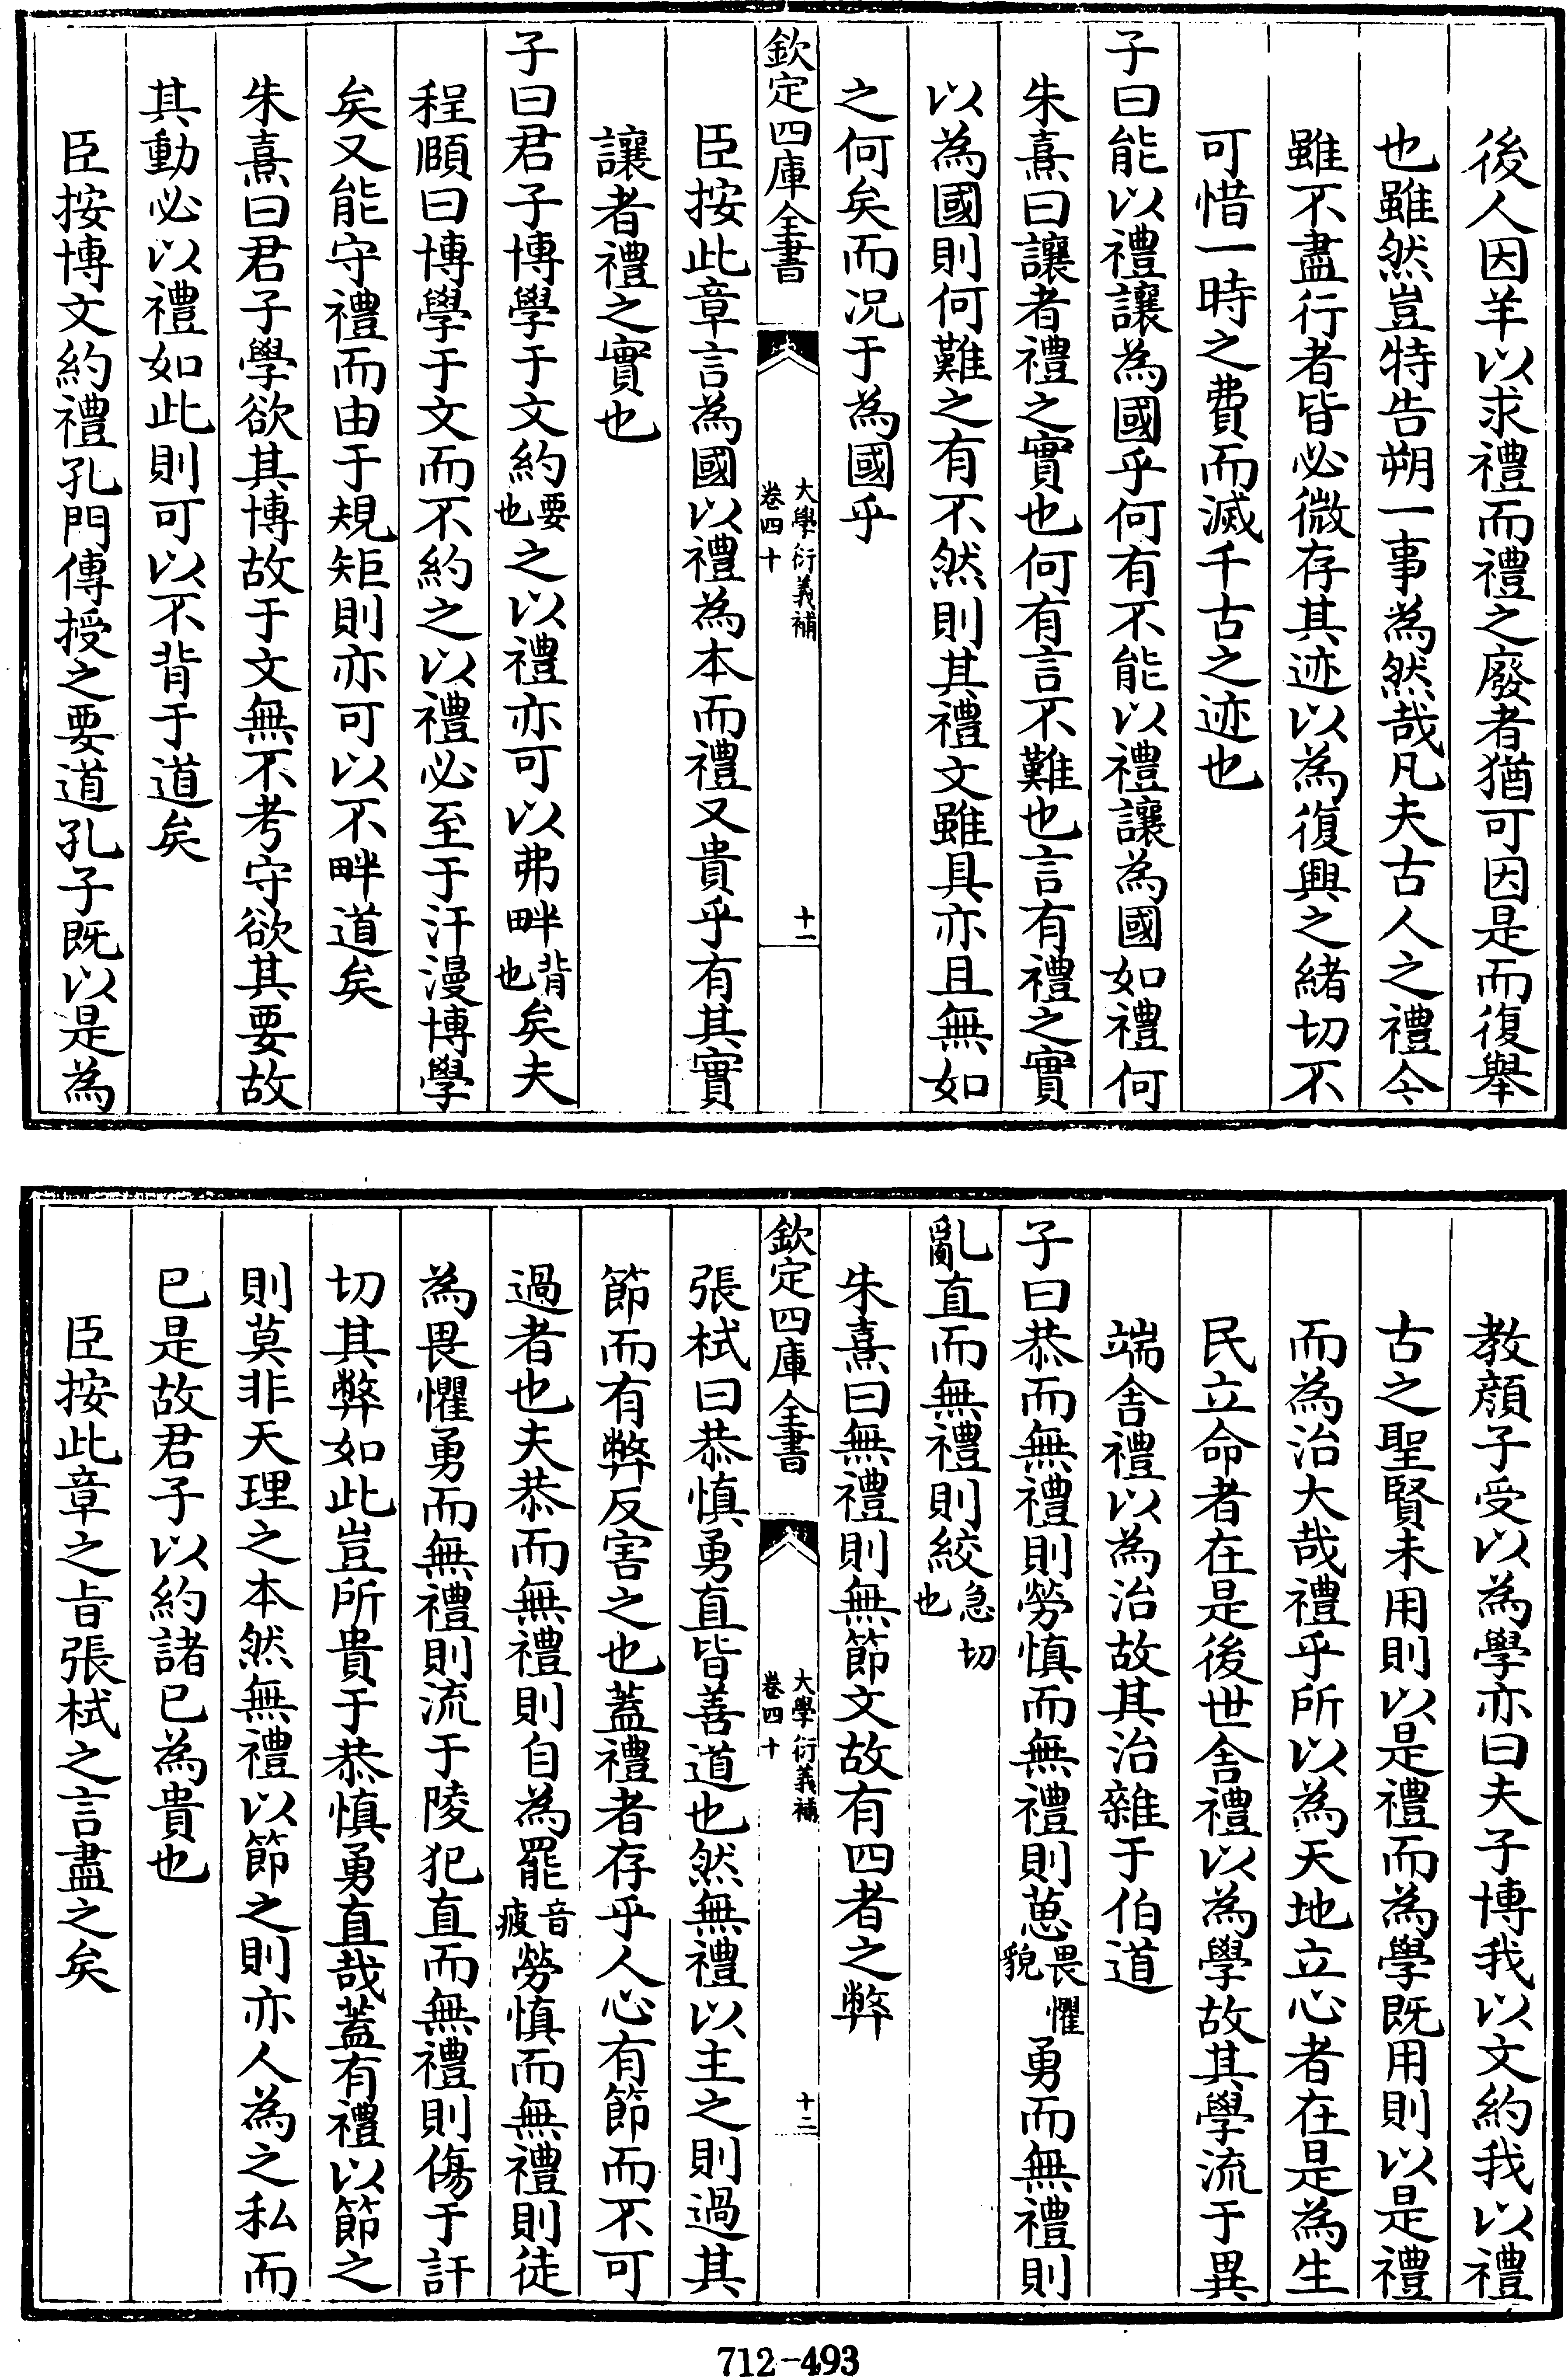 後人因羊以求禮而禮之廢者猶可因是而復舉
也雖然豈特告朔一事為然哉凡夫古人之禮今
雖不盡行者皆必微存其迹以為復興之緒切不
可惜一時之費而滅千古之迹也
子曰能以禮讓為國乎何有不能以禮讓為國如禮何
朱熹曰讓者禮之實也何有言不難也言有禮之實
以為國則何難之有不然則其禮文雖具亦且無如
之何矣而况于為國乎
欽定四庫全書 大學衍義補 卷四十 十一
臣按此章言為國以禮為本而禮又貴乎有其實
讓者禮之實也
子曰君子博學于文約要也之以禮亦可以弗畔背也矣夫
程頤曰博學于文而不約之以禮必至于汗漫博學
矣又能守禮而由于規矩則亦可以不畔道矣
朱熹曰君子學欲其博故于文無不考守欲其要故
其動必以禮如此則可以不背于道矣
臣按博文約禮孔門傳授之要道孔子既以是為
教顔子受以為學亦曰夫子博我以文約我以禮
古之聖賢未用則以是禮而為學既用則以是禮
而為治大哉禮乎所以為天地立心者在是為生
民立命者在是後世舍禮以為學故其學流于異
端舍禮以為治故其治雜于伯道
子曰恭而無禮則勞慎而無禮則葸畏懼貌勇而無禮則
亂直而無禮則絞急切也
朱熹曰無禮則無節文故有四者之弊
欽定四庫全書 大學衍義補 卷四十 十二
張栻曰恭慎勇直皆善道也然無禮以主之則過其
節而有弊反害之也蓋禮者存乎人心有節而不可
過者也夫恭而無禮則自為罷音疲勞慎而無禮則徒
為畏懼勇而無禮則流于陵犯直而無禮則傷于訐
切其弊如此豈所貴于恭慎勇直哉蓋有禮以節之
則莫非天理之本然無禮以節之則亦人為之私而
已是故君子以約諸已為貴也
臣按此章之旨張栻之言盡之矣
712-493